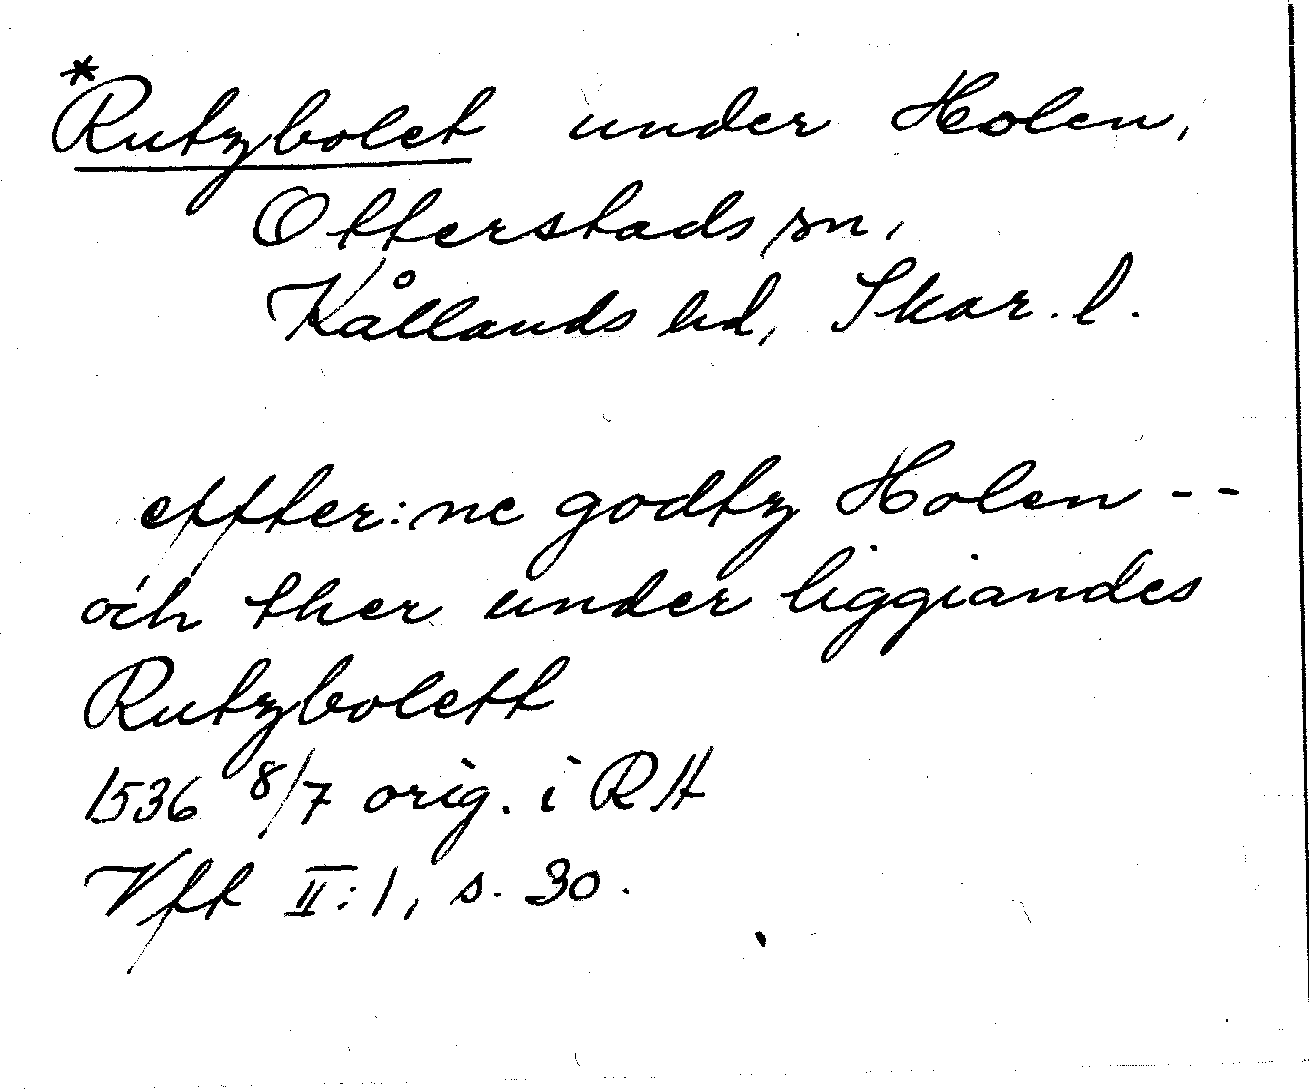 *Rutzbolet under Holen,
Otterstads sn,
Kållands hd, Skar. l.
effter:ne godtz Holen --
och ther under liggiandes
Rutzbolett
1536 8/7 orig. i RH
Vft II:1, s. 30.